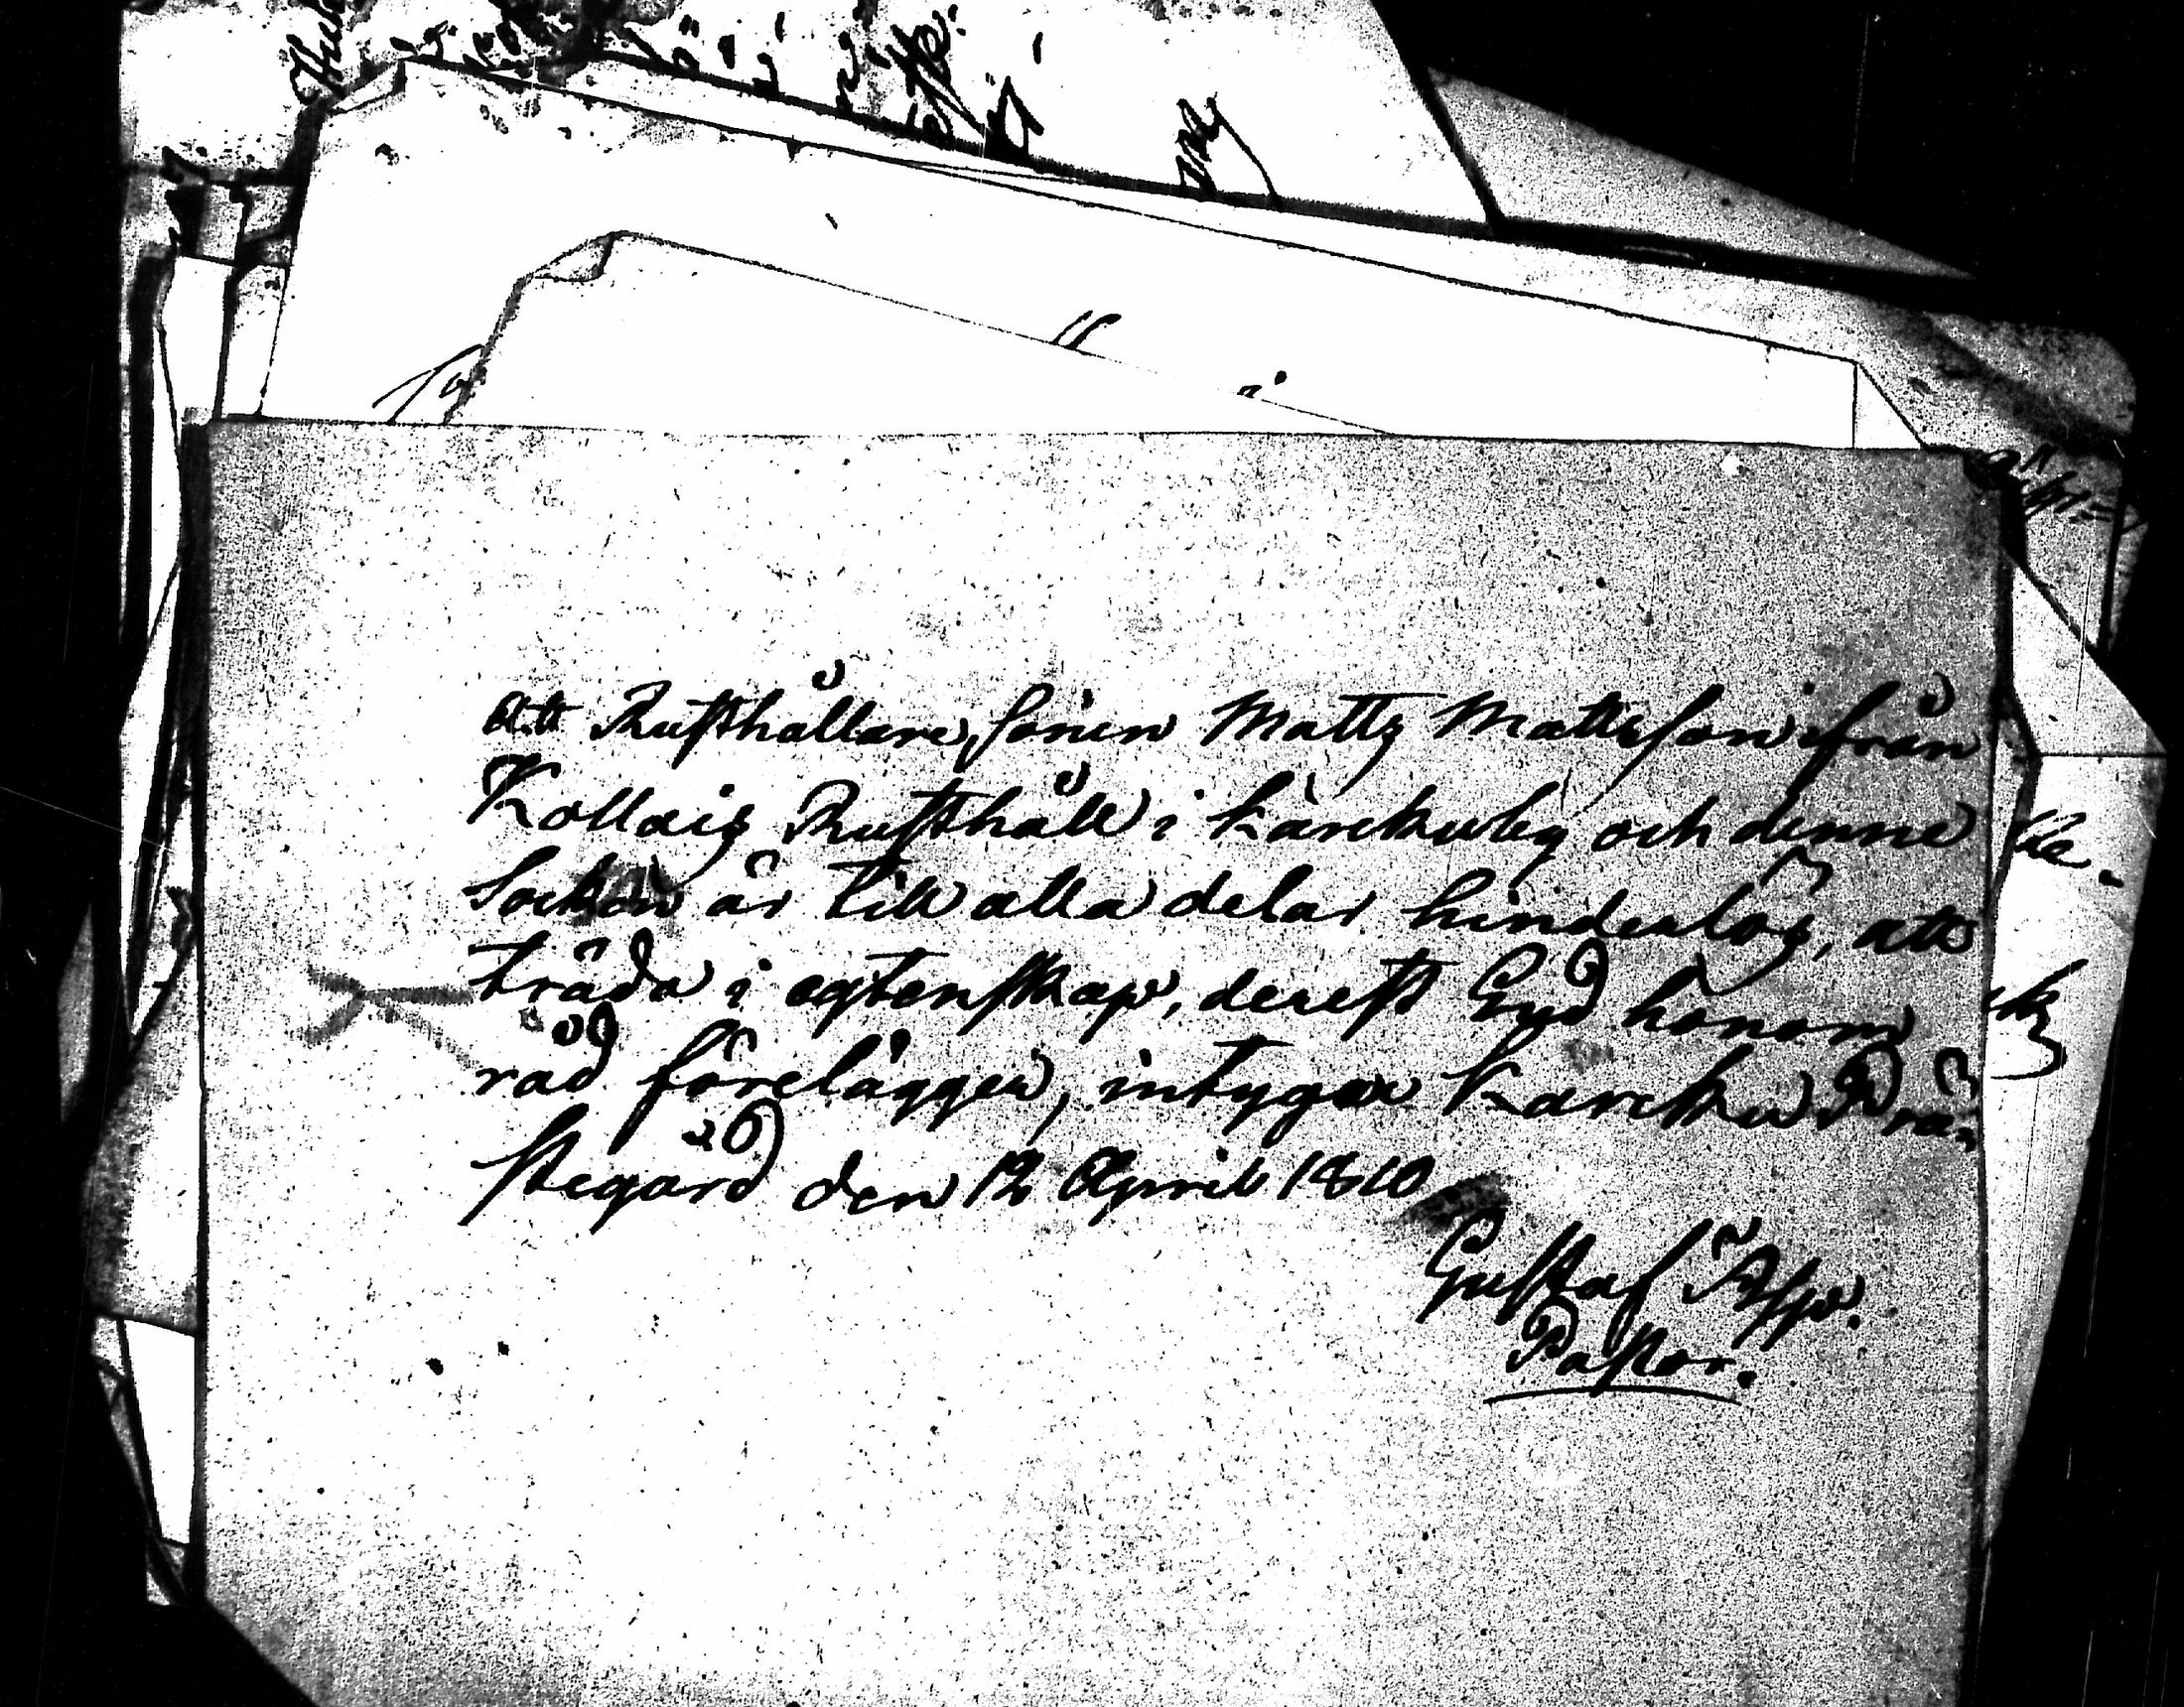 Att Rusthållare Sonen Matts Mattsson ifrån
Kollais Rusthåll i Karckuby och denne
Socken är till alla delar hinderlös, att
träda i egtenskap, derest Gud honom
råd förelägger, intygar Karcku Prä-
stegård den 12 April 1810
Gustaf Asp.
Pastor.